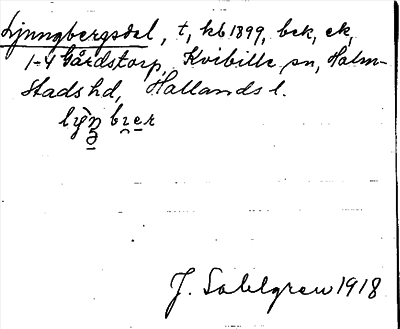 Ljungbergsdel, t, kb 1899, bek, ek,
1-4 Gårdstorp, Kvibille sn, Halm-
stads hd, Hallands l.
J. Sahlgren 1918